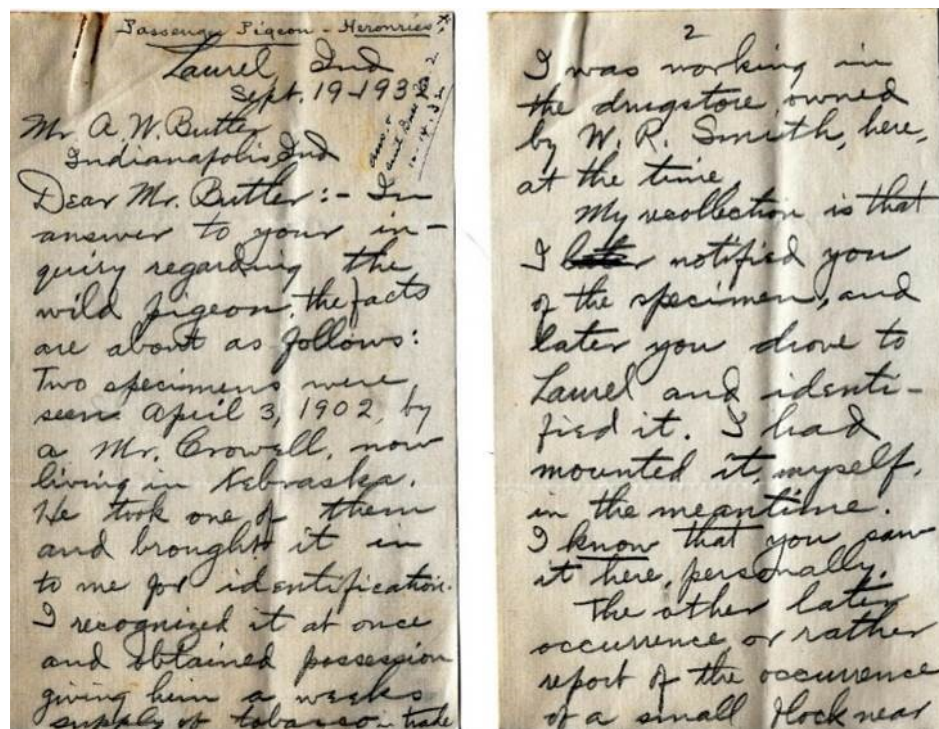 Passenger Pigeon - Heronries
Laurel, Ind
Sept. 19 - 1932
Mr A. W. Butler
Indianapolis Ind
Dear Mr. Butler:- In
answer to your in-
quiry regarding the
wild pigeon, the facts
are about as follows:
Two specimens were
seen April 3, 1902, by
a Mr. Crowell, now
living in Nebraska.
He took one of them
and brought it in
to me for identification.
I recognized it at once
and obtained possession
giving him a weeks
supply of tobacco in trade
2
I was working in
the drugstore owned
by W. R. Smith, here,
at the time.
My recollection is that
I later notified you
of the specimen, and
later you drove to
Laurel and identi-
fied it. I had
mounted it, myself,
in the meantime.
I know that you saw
it here, personally.
The other later
occurrence or rather
report of the occurrence
of a small flock near